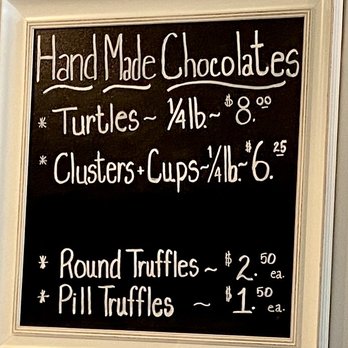 Hand Made Chocolates
* Turtles ~ 1/4 lb. ~ $8.00
* Clusters + Cups ~ 1/4 lb. ~ $6.25
* Round Truffles ~ $2.50 ea.
* Pill Truffles ~ $1.50 ea.